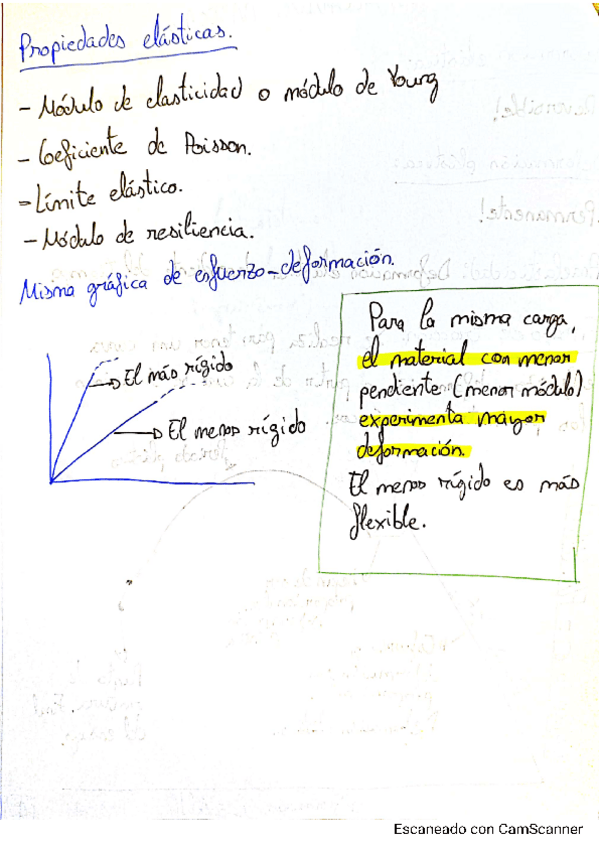 Propiedades elásticas.
- Módulo de elasticidad o módulo de Young
- Coeficiente de Poisson.
- Límite elástico.
- Módulo de resiliencia.
Misma gráfica de esfuerzo-deformación.
El más rígido
El menos rígido
Para la misma carga,
el material con menor
pendiente (menor módulo)
experimenta mayor
deformación.
El menos rígido es más
flexible.
Escaneado con CamScanner